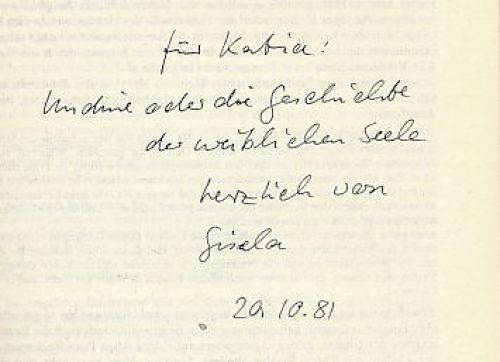 für Katia:
Undine oder die Geschichte
der weiblichen Seele
herzlich von
Gisela
20.10.81